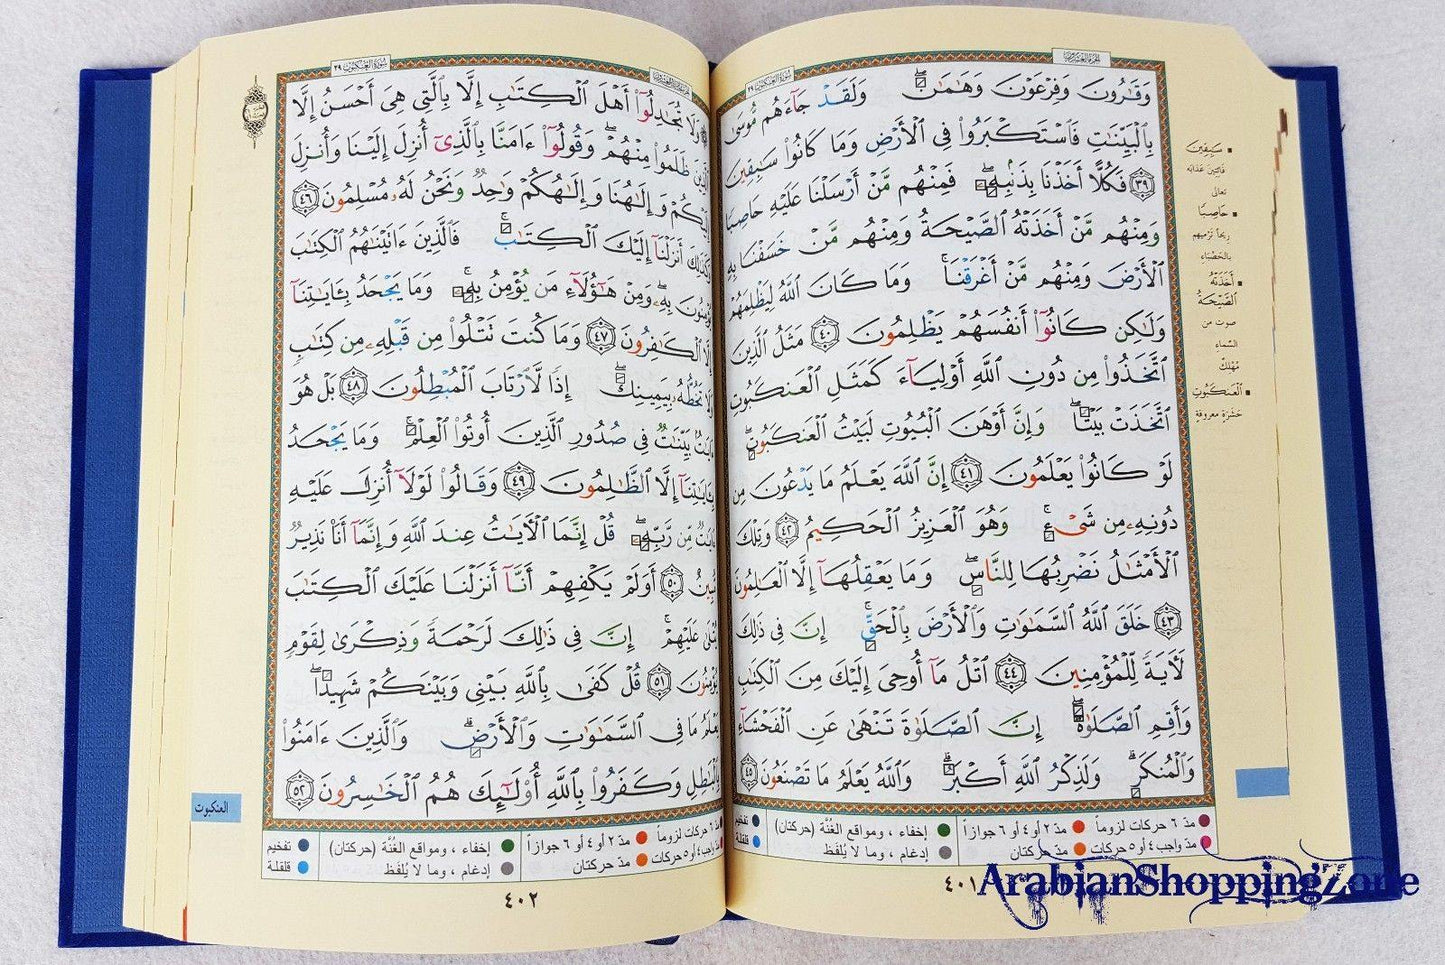 سورة العنكبوت ٢٩
وَقَٰرُونَ وَفِرْعَوْنَ وَهَٰمَٰنَ ۖ وَلَقَدْ جَآءَهُم مُّوسَىٰ
بِٱلْبَيِّنَٰتِ فَٱسْتَكْبَرُوا۟ فِى ٱلْأَرْضِ وَمَا كَانُوا۟ سَٰبِقِينَ
٣٩ فَكُلًّا أَخَذْنَا بِذَنۢبِهِۦ ۖ فَمِنْهُم مَّنْ أَرْسَلْنَا عَلَيْهِ حَاصِبًا
وَمِنْهُم مَّنْ أَخَذَتْهُ ٱلصَّيْحَةُ وَمِنْهُم مَّنْ خَسَفْنَا بِهِ
ٱلْأَرْضَ وَمِنْهُم مَّنْ أَغْرَقْنَا ۚ وَمَا كَانَ ٱللَّهُ لِيَظْلِمَهُمْ
وَلَٰكِن كَانُوٓا۟ أَنفُسَهُمْ يَظْلِمُونَ ٤٠ مَثَلُ ٱلَّذِينَ
ٱتَّخَذُوا۟ مِن دُونِ ٱللَّهِ أَوْلِيَآءَ كَمَثَلِ ٱلْعَنكَبُوتِ
ٱتَّخَذَتْ بَيْتًا ۖ وَإِنَّ أَوْهَنَ ٱلْبُيُوتِ لَبَيْتُ ٱلْعَنكَبُوتِ ۖ
لَوْ كَانُوا۟ يَعْلَمُونَ ٤١ إِنَّ ٱللَّهَ يَعْلَمُ مَا يَدْعُونَ مِن
دُونِهِۦ مِن شَىْءٍ ۚ وَهُوَ ٱلْعَزِيزُ ٱلْحَكِيمُ ٤٢ وَتِلْكَ
ٱلْأَمْثَٰلُ نَضْرِبُهَا لِلنَّاسِ ۖ وَمَا يَعْقِلُهَآ إِلَّا ٱلْعَٰلِمُونَ
٤٣ خَلَقَ ٱللَّهُ ٱلسَّمَٰوَٰتِ وَٱلْأَرْضَ بِٱلْحَقِّ ۚ إِنَّ فِى ذَٰلِكَ
لَءَايَةً لِّلْمُؤْمِنِينَ ٤٤ ٱتْلُ مَآ أُوحِىَ إِلَيْكَ مِنَ ٱلْكِتَٰبِ
وَأَقِمِ ٱلصَّلَوٰةَ ۖ إِنَّ ٱلصَّلَوٰةَ تَنْهَىٰ عَنِ ٱلْفَحْشَآءِ
وَٱلْمُنكَرِ ۗ وَلَذِكْرُ ٱللَّهِ أَكْبَرُ ۗ وَٱللَّهُ يَعْلَمُ مَا تَصْنَعُونَ ٤٥
سَٰبِقِينَ
فائتين عذابه
تعالى
حَاصِبًا
ريحاً ترميهم
بالحصباء
أَخَذَتْهُ
ٱلصَّيْحَةُ
صوت من
السماء
مُهلك
ٱلْعَنكَبُوتِ
حشرة معروفة
مدّ ٦ حركات لزوماً مدّ ٢ أو ٤ أو ٦ جوازاً إخفاء ، ومواقع الغُنَّة (حركتان) تفخيم
مدّ واجب ٤ أو ٥ حركات مدّ حركتان إدغام ، وما لا يُلفَظ قلقلة
٤٠١
سورة العنكبوت ٢٩
وَلَا تُجَٰدِلُوٓا۟ أَهْلَ ٱلْكِتَٰبِ إِلَّا بِٱلَّتِى هِىَ أَحْسَنُ إِلَّا
ٱلَّذِينَ ظَلَمُوا۟ مِنْهُمْ ۖ وَقُولُوٓا۟ ءَامَنَّا بِٱلَّذِىٓ أُنزِلَ إِلَيْنَا وَأُنزِلَ
إِلَيْكُمْ وَإِلَٰهُنَا وَإِلَٰهُكُمْ وَٰحِدٌ وَنَحْنُ لَهُۥ مُسْلِمُونَ ٤٦
وَكَذَٰلِكَ أَنزَلْنَآ إِلَيْكَ ٱلْكِتَٰبَ ۚ فَٱلَّذِينَ ءَاتَيْنَٰهُمُ ٱلْكِتَٰبَ
يُؤْمِنُونَ بِهِۦ ۖ وَمِنْ هَٰٓؤُلَآءِ مَن يُؤْمِنُ بِهِۦ ۚ وَمَا يَجْحَدُ بِـَٔايَٰتِنَآ
إِلَّا ٱلْكَٰفِرُونَ ٤٧ وَمَا كُنتَ تَتْلُوا۟ مِن قَبْلِهِۦ مِن كِتَٰبٍ
وَلَا تَخُطُّهُۥ بِيَمِينِكَ ۖ إِذًا لَّٱرْتَابَ ٱلْمُبْطِلُونَ ٤٨ بَلْ هُوَ
ءَايَٰتٌۢ بَيِّنَٰتٌ فِى صُدُورِ ٱلَّذِينَ أُوتُوا۟ ٱلْعِلْمَ ۚ وَمَا يَجْحَدُ
بِـَٔايَٰتِنَآ إِلَّا ٱلظَّٰلِمُونَ ٤٩ وَقَالُوا۟ لَوْلَآ أُنزِلَ عَلَيْهِ
ءَايَٰتٌ مِّن رَّبِّهِۦ ۖ قُلْ إِنَّمَا ٱلْءَايَٰتُ عِندَ ٱللَّهِ وَإِنَّمَآ أَنَا۠ نَذِيرٌ
مُّبِينٌ ٥٠ أَوَلَمْ يَكْفِهِمْ أَنَّآ أَنزَلْنَا عَلَيْكَ ٱلْكِتَٰبَ
يُتْلَىٰ عَلَيْهِمْ ۚ إِنَّ فِى ذَٰلِكَ لَرَحْمَةً وَذِكْرَىٰ لِقَوْمٍ
يُؤْمِنُونَ ٥١ قُلْ كَفَىٰ بِٱللَّهِ بَيْنِى وَبَيْنَكُمْ شَهِيدًا ۖ
يَعْلَمُ مَا فِى ٱلسَّمَٰوَٰتِ وَٱلْأَرْضِ ۗ وَٱلَّذِينَ ءَامَنُوا۟
بِٱلْبَٰطِلِ وَكَفَرُوا۟ بِٱللَّهِ أُو۟لَٰٓئِكَ هُمُ ٱلْخَٰسِرُونَ ٥٢
العنكبوت
مدّ ٦ حركات لزوماً مدّ ٢ أو ٤ أو ٦ جوازاً إخفاء ، ومواقع الغُنَّة (حركتان) تفخيم
مدّ واجب ٤ أو ٥ حركات مدّ حركتان إدغام ، وما لا يُلفَظ قلقلة
٤٠٢
ArabianShoppingZone